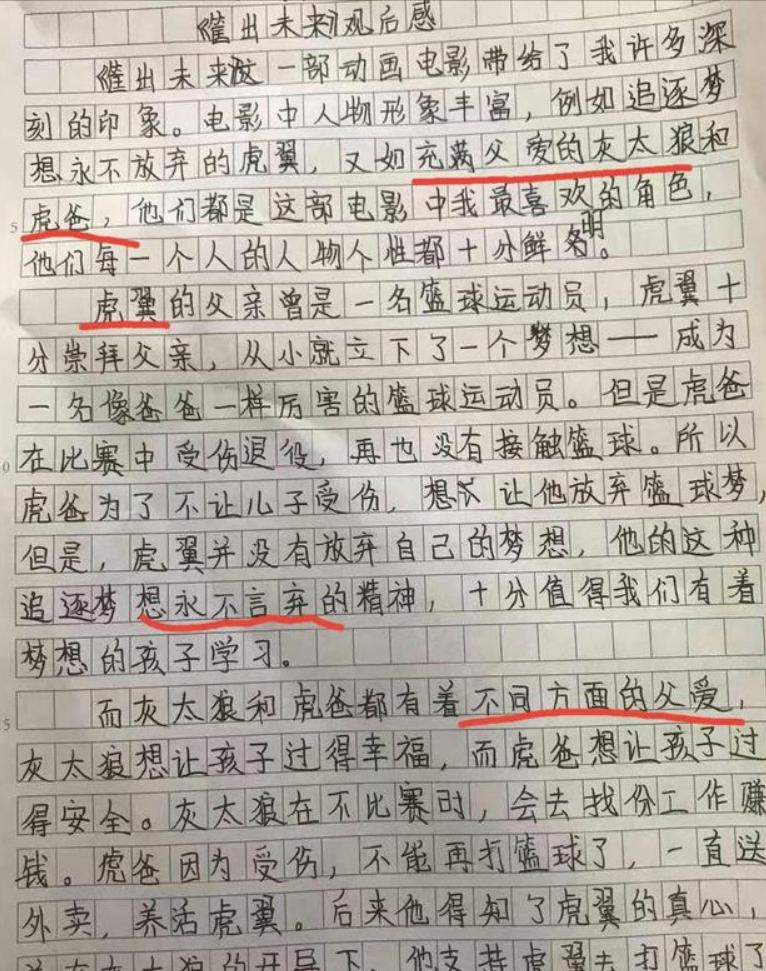 《筐出未来》观后感
《筐出未来》这一部动画电影带给了我许多深
刻的印象。电影中人物形象丰富，例如追逐梦
想永不放弃的虎翼，又如充满父爱的灰太狼和
5
虎爸，他们都是这部电影中我最喜欢的角色，
他们每一个人的人物个性都十分鲜明。
虎翼的父亲曾是一名篮球运动员，虎翼十
分崇拜父亲，从小就立下了一个梦想——成为
一名像爸爸一样厉害的篮球运动员。但是虎爸
0
在比赛中受伤退役，再也没有接触篮球。所以
虎爸为了不让儿子受伤，想 让他放弃篮球梦，
但是，虎翼并没有放弃自己的梦想，他的这种
追逐梦想永不言弃的精神，十分值得我们有着
梦想的孩子学习。
5
而灰太狼和虎爸都有着不同方面的父爱，
灰太狼想让孩子过得幸福，而虎爸想让孩子过
得安全。灰太狼在不比赛时，会去找份工作赚
钱。虎爸因为受伤，不能再打篮球了，一直送
外卖，养活虎翼。后来他得知了虎翼的真心，
并在灰太狼的开导下，他支持虎翼去打篮球了